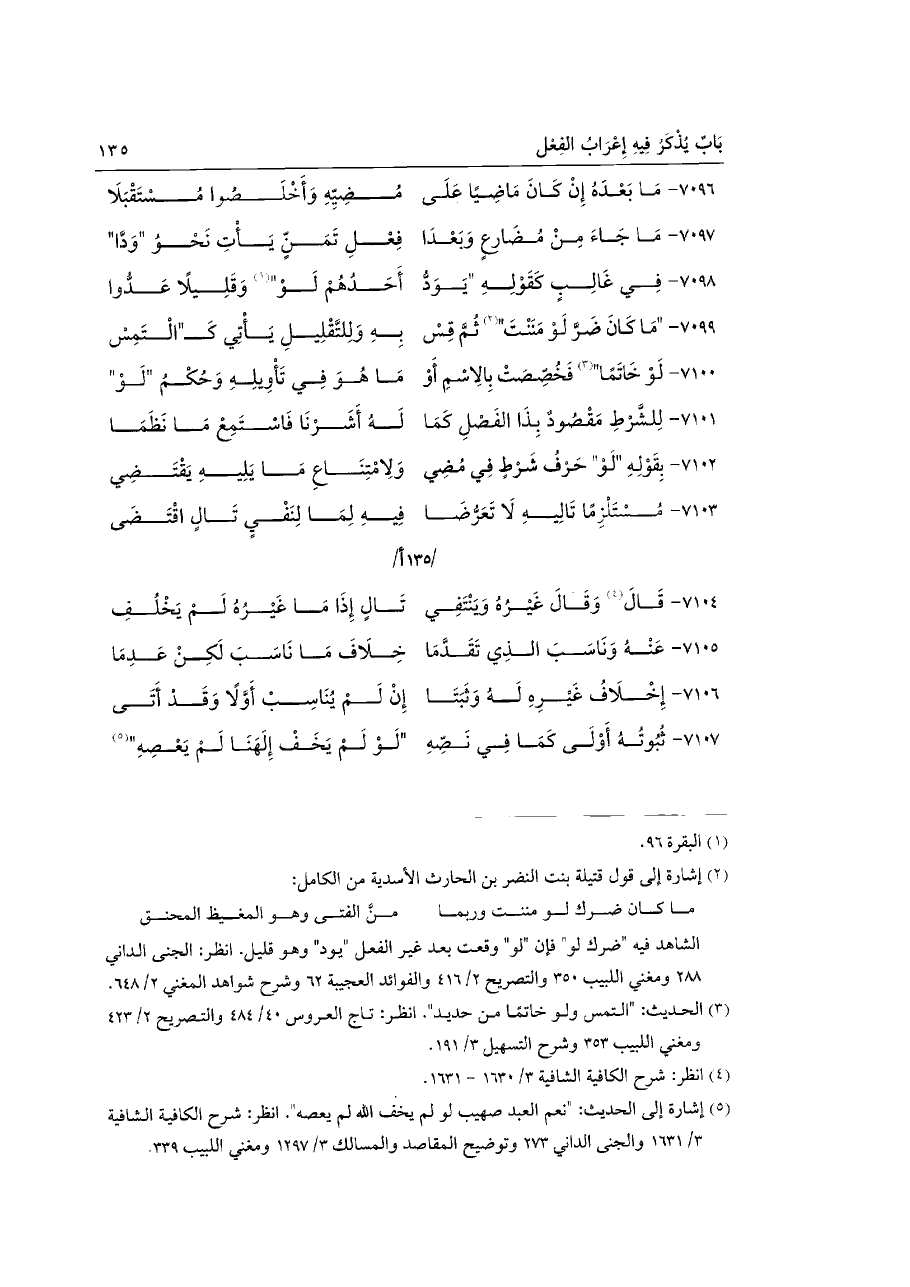 بَابٌ يُذْكَرُ فِيهِ إِعْرَابُ الفِعْل ١٣٥
٧٠٩٦- مَا بَعْدَهُ إِنْ كَانَ مَاضِيًا عَلَى مُضِيِّهِ وَأَخْلَصُوا مُسْتَقْبَلَا
٧٠٩٧- مَا جَاءَ مِنْ مُضَارِعٍ وَبَعْدَا فِعْلِ تَمَنٍّ يَأْتِ نَحْوُ "وَدَّا"
٧٠٩٨- فِي غَالِبٍ كَقَوْلِهِ "يَوَدُّ أَحَدُهُمْ لَوْ"(١) وَقَلِيلًا عَدُّوا
٧٠٩٩- "مَا كَانَ ضَرَّ لَوْ مَنَنْتَ"(٢) ثُمَّ قِسْ بِهِ وَلِلتَّقْلِيلِ يَأْتِي كَـ"الْتَمِسْ
٧١٠٠- لَوْ خَاتَمًا"(٣) فَخُصِّصَتْ بِالِاسْمِ أَوْ مَا هُوَ فِي تَأْوِيلِهِ وَحُكْمُ "لَوْ"
٧١٠١- لِلشَّرْطِ مَقْصُودٌ بِذَا الفَصْلِ كَمَا لَهُ أَشَرْنَا فَاسْتَمِعْ مَا نَظَمَا
٧١٠٢- بِقَوْلِهِ "لَوْ" حَرْفُ شَرْطٍ فِي مُضِي وَلِامْتِنَاعِ مَا يَلِيهِ يَقْتَضِي
٧١٠٣- مُسْتَلْزِمًا تَالِيهِ لَا تَعَرُّضَا فِيهِ لِمَا لِنَفْيِ تَالٍ اقْتَضَى
/١٣٥أ/
٧١٠٤- قَالَ(٤) وَقَالَ غَيْرُهُ وَيَنْتَفِي تَالٍ إِذَا مَا غَيْرُهُ لَمْ يَخْلُفِ
٧١٠٥- عَنْهُ وَنَاسَبَ الذِي تَقَدَّمَا خِلَافَ مَا نَاسَبَ لَكِنْ عَدِمَا
٧١٠٦- إِخْلَافُ غَيْرِهِ لَهُ وَثَبَتَا إِنْ لَمْ يُنَاسِبْ أَوَّلًا وَقَدْ أَتَى
٧١٠٧- ثُبُوتُهُ أَوْلَى كَمَا فِي نَصِّهِ "لَوْ لَمْ يَخَفْ إِلَهَنَا لَمْ يَعْصِهِ"(٥)
(١) البقرة ٩٦.
(٢) إشارة إلى قول قتيلة بنت النضر بن الحارث الأسدية من الكامل:
ما كان ضرك لو مننت وربما منَّ الفتى وهو المغيظ المحنق
الشاهد فيه "ضرك لو" فإن "لو" وقعت بعد غير الفعل "يود" وهو قليل. انظر: الجنى الداني
٢٨٨ ومغني اللبيب ٣٥٠ والتصريح ٢/ ٤١٦ والفوائد العجيبة ٦٢ وشرح شواهد المغني ٢/ ٦٤٨.
(٣) الحديث: "التمس ولو خاتمًا من حديد". انظر: تاج العروس ٤٠/ ٤٨٤ والتصريح ٢/ ٤٢٣
ومغني اللبيب ٣٥٣ وشرح التسهيل ٣/ ١٩١.
(٤) انظر: شرح الكافية الشافية ٣/ ١٦٣٠ - ١٦٣١.
(٥) إشارة إلى الحديث: "نعم العبد صهيب لو لم يخف الله لم يعصه". انظر: شرح الكافية الشافية
٣/ ١٦٣١ والجنى الداني ٢٧٣ وتوضيح المقاصد والمسالك ٣/ ١٢٩٧ ومغني اللبيب ٣٣٩.